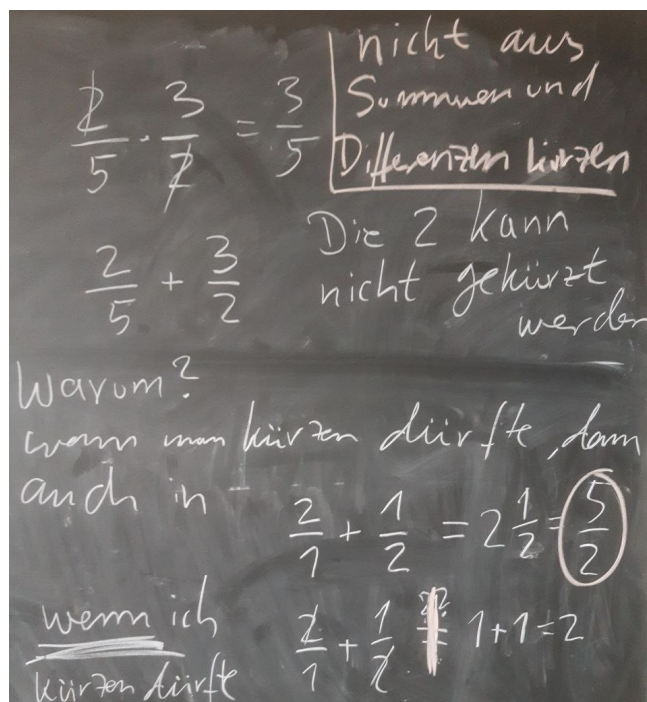 2/5 · 3/2 = 3/5
nicht aus
Summen und
Differenzen kürzen
2/5 + 3/2
Die 2 kann
nicht gekürzt
werden
Warum?
wenn man kürzen dürfte, dann
auch in
2/1 + 1/2 = 2 1/2 = 5/2
wenn ich
kürzen dürfte
2/1 + 1/2 ?? = 1+1=2